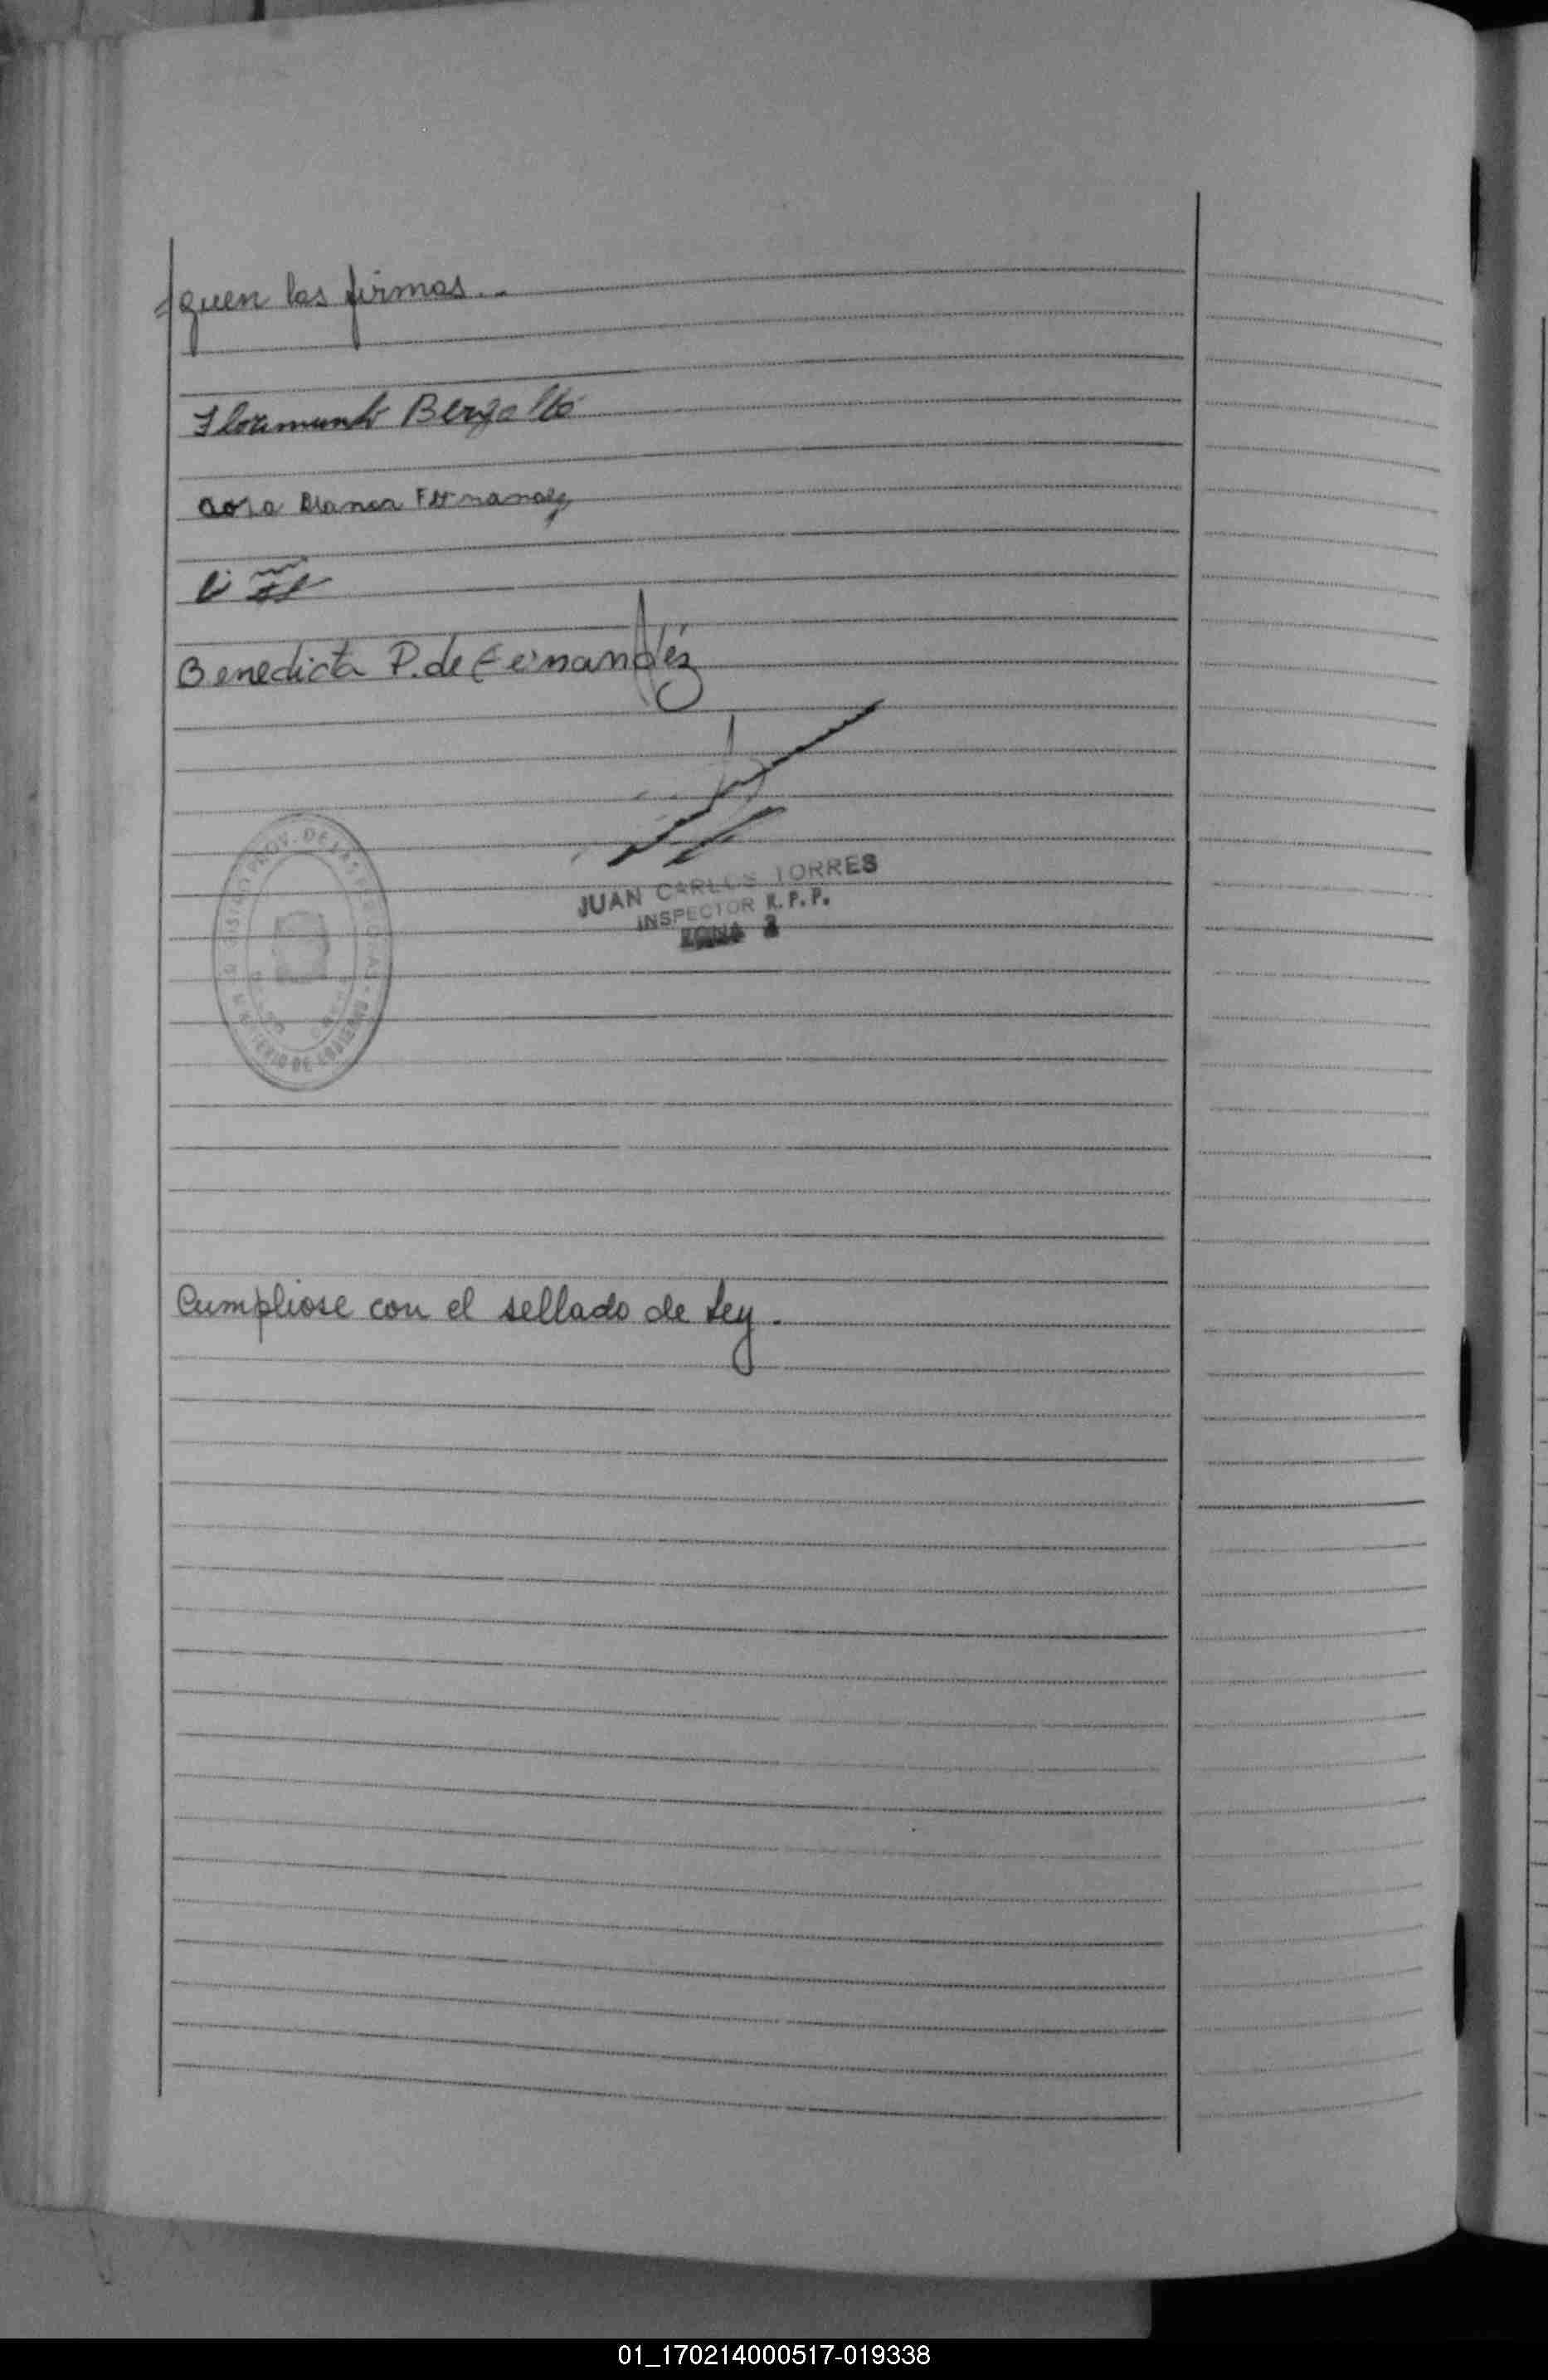 guen las firmas..
Florimundo Bergallo
Rosa Blanca Fernandez
Benedicta P. de Fernandez
JUAN CARLOS TORRES
INSPECTOR R.P.P.
ZONA 2
PROV. DE LAS
MINISTERIO DE GOBIERNO
Cumpliose con el sellado de Ley.
01_170214000517-019338